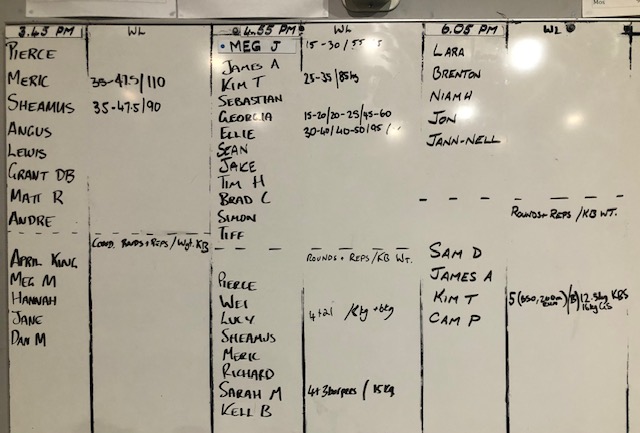 3.45 PM WL
PIERCE
MERIC 35-47.5/110
SHEAMUS 35-47.5/90
ANGUS
LEWIS
GRANT DB
MATT R
ANDRE
COND. ROUNDS + REPS / Wgt. KB
APRIL KING
MEG M
HANNAH
JANE
DAN M
4.55 PM WL
MEG J 15-30/55
JAMES A
KIM T 25-35/85kg
SEBASTIAN
GEORGIA 15-20/20-25/45-60
ELLIE 30-40/40-50/95
SEAN
JAKE
TIM H
BRAD C
SIMON
TIFF
ROUNDS + REPS / KB WT.
PIERCE
WEI
LUCY 4+21 /8kg+6kg
SHEAMUS
MERIC
RICHARD
SARAH M 4+3burpees / 15kg
KELL B
6.05 PM WL
LARA
BRENTON
NIAMH
JON
JANN-NELL
ROUNDS + REPS / KB WT.
SAM D
JAMES A
KIM T 5 (650, 200m RUN) /8) 12.5kg KBS
16kg
CAM P